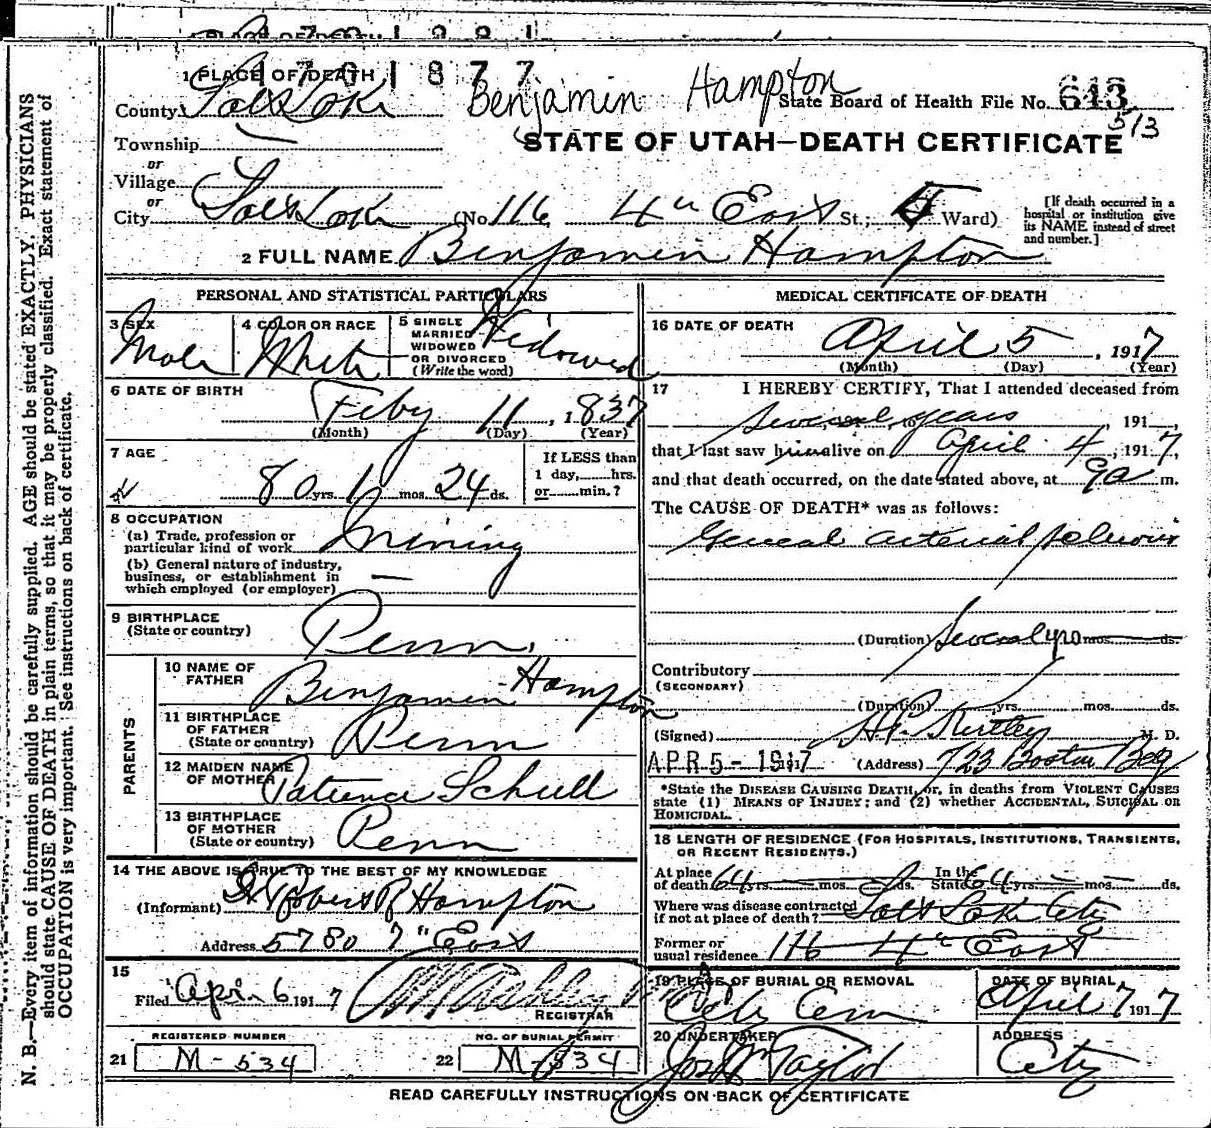 1701877
1 PLACE OF DEATH
County Salt Lake Benjamin Hampton State Board of Health File No. 643
513
Township
STATE OF UTAH—DEATH CERTIFICATE
or
Village
or
City Salt Lake (No. 116 4th East St.; Ward) [If death occurred in a hospital or institution give its NAME instead of street and number.]
2 FULL NAME Benjamin Hampton
PERSONAL AND STATISTICAL PARTICULARS
3 SEX Male
4 COLOR OR RACE White
5 SINGLE MARRIED WIDOWED OR DIVORCED (Write the word) Widowed
6 DATE OF BIRTH Feby 11, 1837
(Month) (Day) (Year)
7 AGE
80 yrs. 1 mos. 24 ds.
If LESS than
1 day,......hrs.
or......min.?
8 OCCUPATION
(a) Trade, profession or
particular kind of work Mining
(b) General nature of industry,
business, or establishment in
which employed (or employer)
9 BIRTHPLACE
(State or country) Penn.
PARENTS
10 NAME OF
FATHER Benjamin Hampton
11 BIRTHPLACE
OF FATHER
(State or country) Penn
12 MAIDEN NAME
OF MOTHER Patience Schull
13 BIRTHPLACE
OF MOTHER
(State or country) Penn
14 THE ABOVE IS TRUE TO THE BEST OF MY KNOWLEDGE
(Informant) Robert R Hampton
Address 5780 7th East
15
Filed Apr 6 1917
REGISTRAR
REGISTERED NUMBER
21 M-534
NO. OF BURIAL PERMIT
22 M-534
MEDICAL CERTIFICATE OF DEATH
16 DATE OF DEATH
April 5, 1917
(Month) (Day) (Year)
17 I HEREBY CERTIFY, That I attended deceased from
several years, 191
that I last saw him alive on April 4, 1917,
and that death occurred, on the date stated above, at 9a m.
The CAUSE OF DEATH* was as follows:
General arterial
(Duration) Several yrs mos. ds.
Contributory
(SECONDARY)
(Duration) yrs. mos. ds.
(Signed) H.P. Kirtley M. D.
APR 5 - 1917 (Address) 723 Boston Bdg
*State the DISEASE CAUSING DEATH, or, in deaths from VIOLENT CAUSES
state (1) MEANS OF INJURY; and (2) whether ACCIDENTAL, SUICIDAL OR
HOMICIDAL.
18 LENGTH OF RESIDENCE (FOR HOSPITALS, INSTITUTIONS, TRANSIENTS,
OR RECENT RESIDENTS.)
At place
of death 64 yrs. mos. ds. In the State 64 yrs. mos. ds.
Where was disease contracted
if not at place of death? Salt Lake City
Former or
usual residence 116 4th East
19 PLACE OF BURIAL OR REMOVAL
City Cem
DATE OF BURIAL
April 7 1917
20 UNDERTAKER
Jos Wm Taylor
ADDRESS
City
READ CAREFULLY INSTRUCTIONS ON BACK OF CERTIFICATE
N. B.—Every item of information should be carefully supplied. AGE should be stated EXACTLY. PHYSICIANS
should state CAUSE OF DEATH in plain terms, so that it may be properly classified. Exact statement of
OCCUPATION is very important. See instructions on back of certificate.